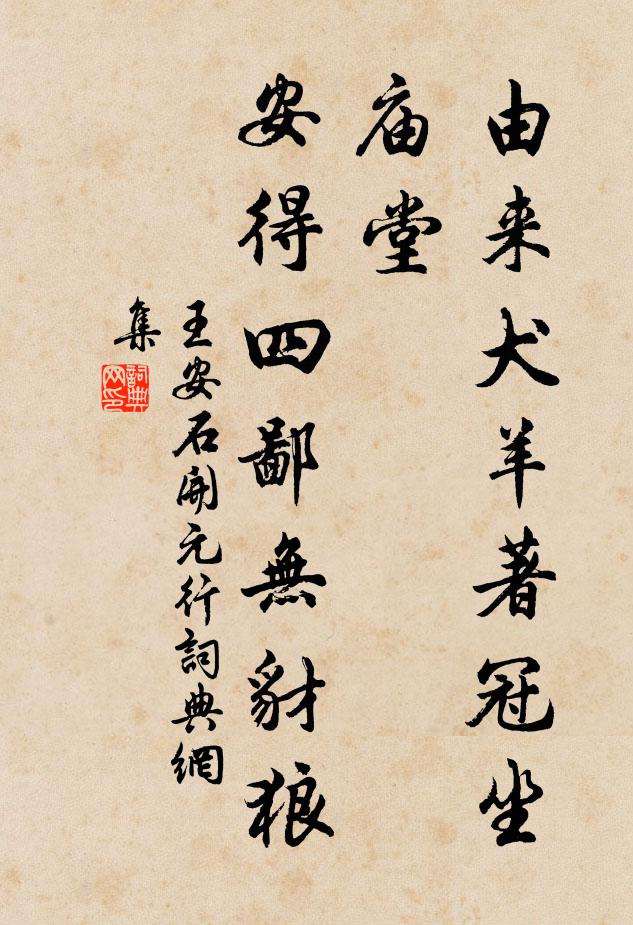 由来犬羊著冠坐
庙堂
安得四鄙無豺狼
王安石開元行詞典網
集
詞典
网印